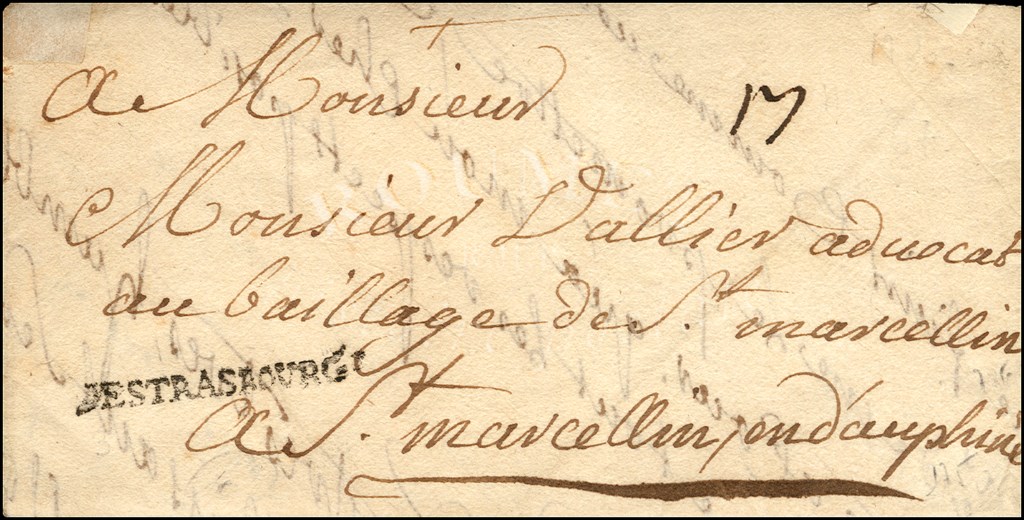 A Monsieur
Monsieur Vallier advocat
au baillage de St. marcellin
DESTRASBOURG
A St. marcellin, en dauphiné